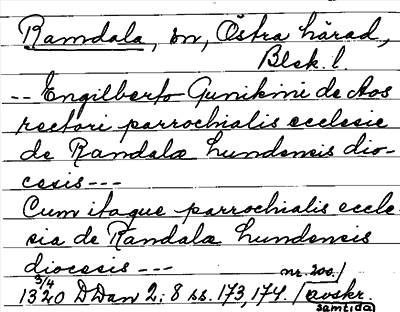 Ramdala, sn, Östra härad,
Blek. l.
-- Engilberto Gunikini de Aos
rectori parrochialis ecclesie
de Randala Lundensis dio-
cesis ---
Cum itaque parrochialis eccle-
sia de Randala Lundensis
diocesis ---
nr. 200.
3/4
1320 DDan 2:8 ss. 173, 174. avskr.
samtida